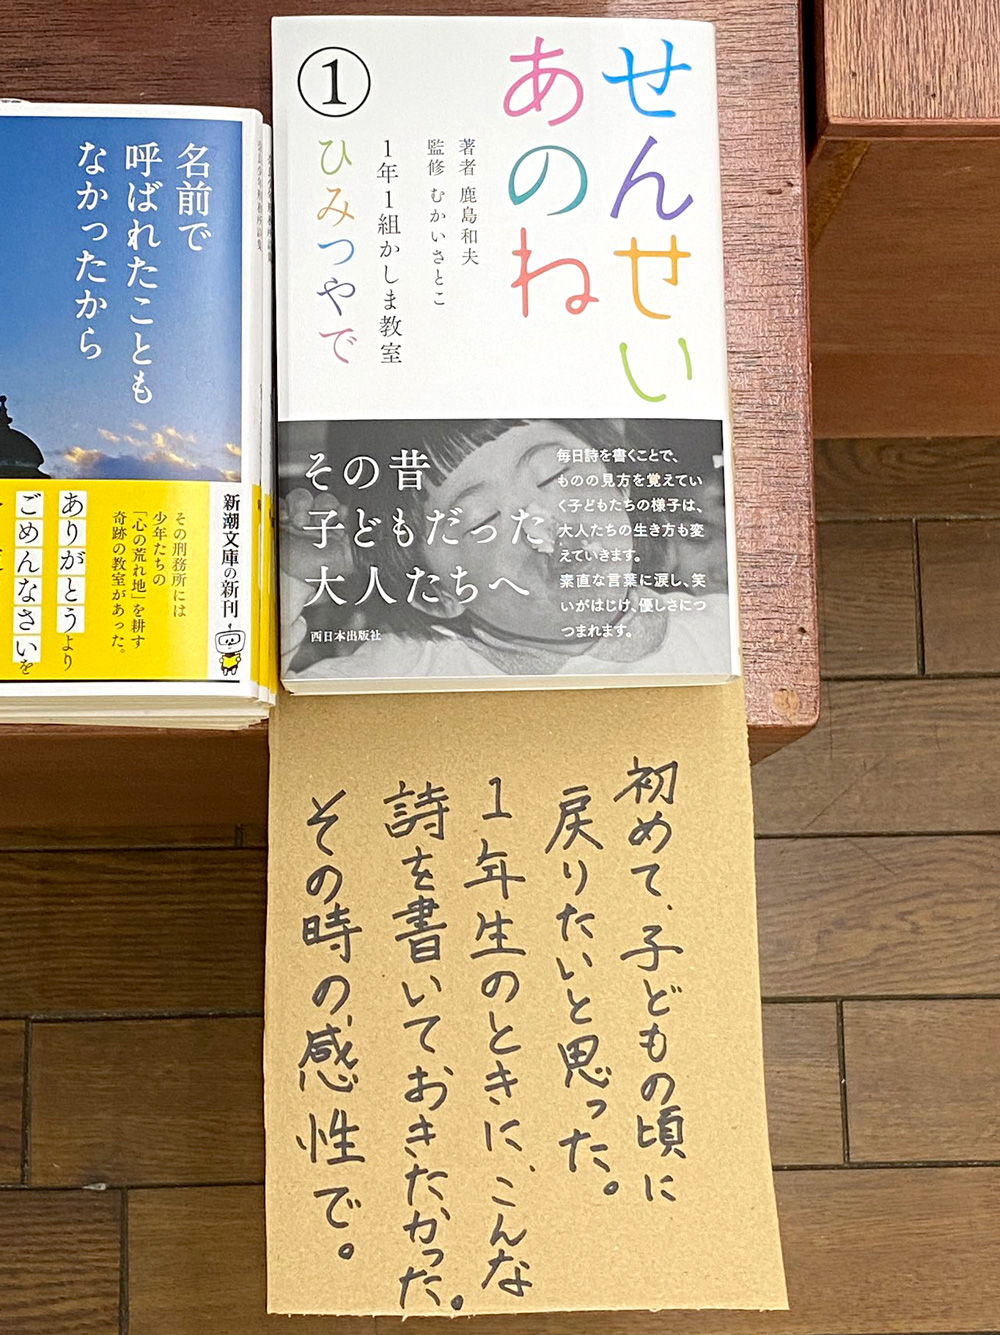 せんせい
あのね
①
著者 鹿島和夫
監修 むかいさとこ
1年1組かしま教室
ひみつやで
その昔
子どもだった
大人たちへ
毎日詩を書くことで、
ものの見方を覚えてい
く子どもたちの様子は、
大人たちの生き方も変
えていきます。
素直な言葉に涙し、笑
いがはじけ、優しさにつ
つまれます。
西日本出版社
名前で
呼ばれたことも
なかったから
新潮文庫の新刊
その刑務所には
少年たちの
「心の荒れ地」を耕す
奇跡の教室があった。
ありがとうより
ごめんなさいを
初めて、子どもの頃に
戻りたいと思った。
1年生のときに、こんな
詩を書いておきたかった。
その時の、感性で。